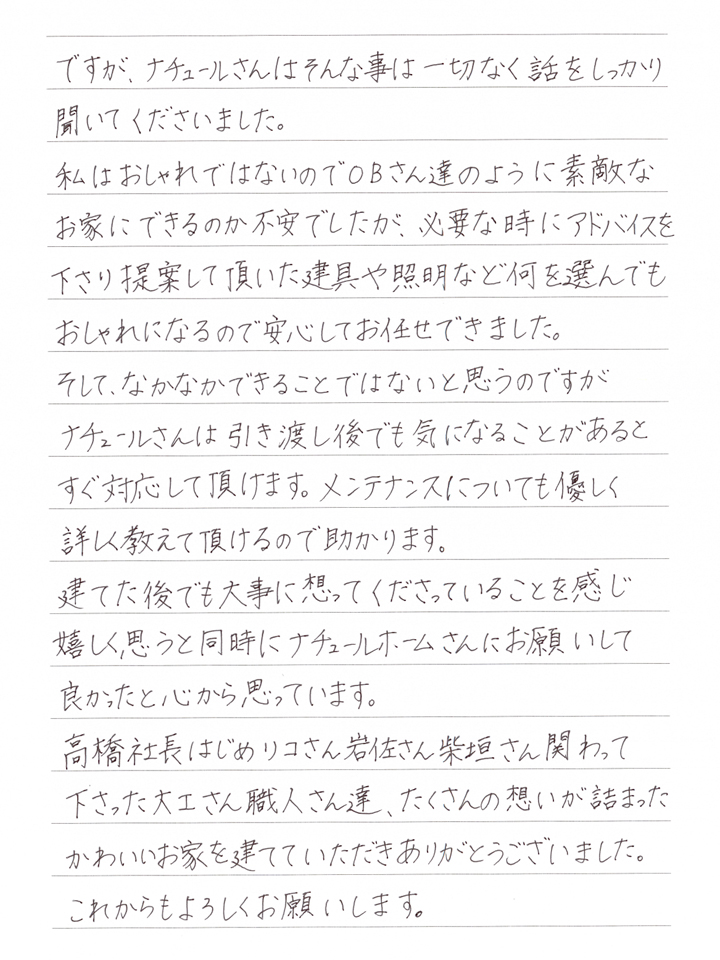 ですが、ナチュールさんはそんな事は一切なく話をしっかり
聞いてくださいました。
私はおしゃれではないのでOBさん達のように素敵な
お家にできるのか不安でしたが、必要な時にアドバイスを
下さり提案して頂いた建具や照明など何を選んでも
おしゃれになるので安心してお任せできました。
そして、なかなかできることではないと思うのですが
ナチュールさんは引き渡し後でも気になることがあると
すぐ対応して頂けます。メンテナンスについても優しく
詳しく教えて頂けるので助かります。
建てた後でも大事に想ってくださっていることを感じ
嬉しく思うと同時にナチュールホームさんにお願いして
良かったと心から思っています。
高橋社長はじめリコさん岩佐さん柴垣さん関わって
下さった大工さん職人さん達、たくさんの想いが詰まった
かわいいお家を建てていただきありがとうございました。
これからもよろしくお願いします。